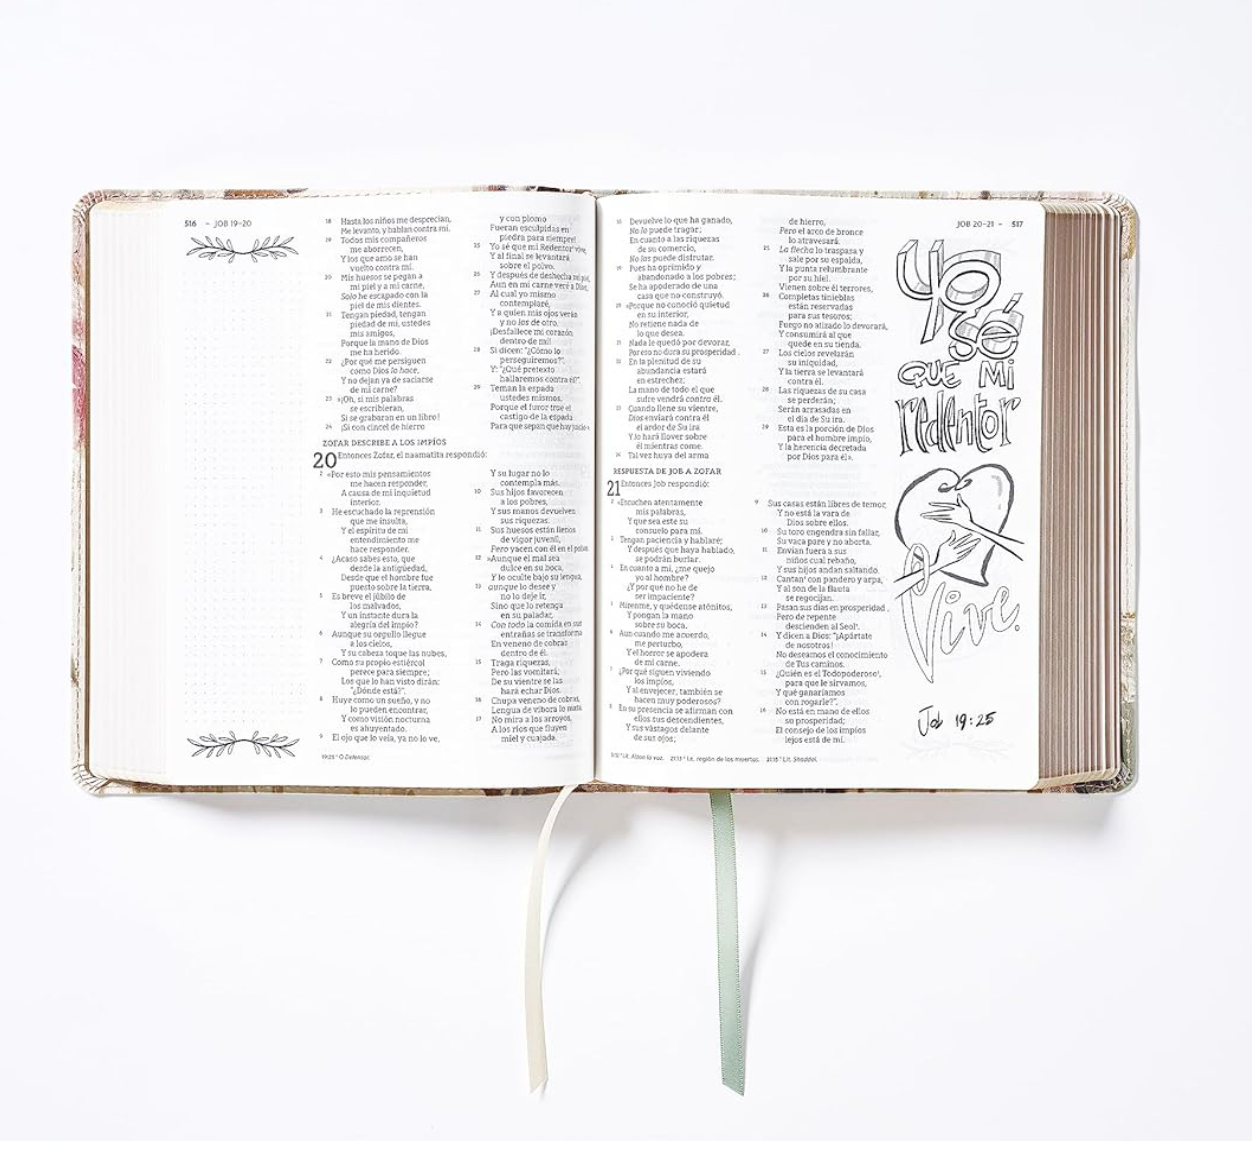 516 – JOB 19–20
18 Hasta los niños me desprecian,
Me levanto, y hablan contra mí.
19 Todos mis compañeros
me aborrecen,
Y los que amo se han
vuelto contra mí.
20 Mis huesos se pegan a
mi piel y a mi carne,
Solo he escapado con la
piel de mis dientes.
21 Tengan piedad, tengan
piedad de mí, ustedes
mis amigos,
Porque la mano de Dios
me ha herido.
22 ¿Por qué me persiguen
como Dios lo hace,
Y no dejan ya de saciarse
de mi carne?
23 »¡Oh, si mis palabras
se escribieran,
Si se grabaran en un libro!
24 ¡Si con cincel de hierro
y con plomo
Fueran esculpidas en
piedra para siempre!
25 Yo sé que mi Redentor vive,
Y al final se levantará
sobre el polvo.
26 Y después de deshecha mi piel,
Aun en mi carne veré a Dios,
27 Al cual yo mismo
contemplaré,
Y a quien mis ojos verán
y no los de otro.
¡Desfallece mi corazón
dentro de mí!
28 Si dicen: "¿Cómo lo
perseguiremos?",
Y: "¿Qué pretexto
hallaremos contra él?",
29 Teman la espada
ustedes mismos,
Porque el furor trae el
castigo de la espada
Para que sepan que hay juicio».
ZOFAR DESCRIBE A LOS IMPÍOS
20 Entonces Zofar, el naamatita respondió:
2 «Por esto mis pensamientos
me hacen responder,
A causa de mi inquietud
interior.
3 He escuchado la reprensión
que me insulta,
Y el espíritu de mi
entendimiento me
hace responder.
4 ¿Acaso sabes esto, que
desde la antigüedad,
Desde que el hombre fue
puesto sobre la tierra,
5 Es breve el júbilo de
los malvados,
Y un instante dura la
alegría del impío?
6 Aunque su orgullo llegue
a los cielos,
Y su cabeza toque las nubes,
7 Como su propio estiércol
perece para siempre;
Los que lo han visto dirán:
"¿Dónde está?".
8 Huye como un sueño, y no
lo pueden encontrar,
Y como visión nocturna
es ahuyentado.
9 El ojo que lo veía, ya no lo ve,
Y su lugar no lo
contempla más.
10 Sus hijos favorecen
a los pobres,
Y sus manos devuelven
sus riquezas.
11 Sus huesos están llenos
de vigor juvenil,
Pero yacen con él en el polvo.
12 »Aunque el mal sea
dulce en su boca,
Y lo oculte bajo su lengua,
13 aunque lo desee y
no lo deje ir,
Sino que lo retenga
en su paladar,
14 Con todo la comida en sus
entrañas se transforma
En veneno de cobras
dentro de él.
15 Traga riquezas,
Pero las vomitará;
De su vientre se las
hará echar Dios.
16 Chupa veneno de cobras,
Lengua de víbora lo mata.
17 No mira a los arroyos,
A los ríos que fluyen
miel y cuajada.
19:25 O Defensor.
JOB 20–21 – 517
18 Devuelve lo que ha ganado,
No lo puede tragar;
En cuanto a las riquezas
de su comercio,
No las puede disfrutar.
19 Pues ha oprimido y
abandonado a los pobres;
Se ha apoderado de una
casa que no construyó.
20 »Porque no conoció quietud
en su interior,
No retiene nada de
lo que desea.
21 Nada le quedó por devorar,
Por eso no dura su prosperidad.
22 En la plenitud de su
abundancia estará
en estrechez;
La mano de todo el que
sufre vendrá contra él.
23 Cuando llene su vientre,
Dios enviará contra él
el ardor de Su ira
Y lo hará llover sobre
él mientras come.
24 Tal vez huya del arma
de hierro,
Pero el arco de bronce
lo atravesará.
25 La flecha lo traspasa y
sale por su espalda,
Y la punta relumbrante
por su hiel.
Vienen sobre él terrores,
26 Completas tinieblas
están reservadas
para sus tesoros;
Fuego no atizado lo devorará,
Y consumirá al que
quede en su tienda.
27 Los cielos revelarán
su iniquidad,
Y la tierra se levantará
contra él.
28 Las riquezas de su casa
se perderán;
Serán arrasadas en
el día de Su ira.
29 Esta es la porción de Dios
para el hombre impío,
Y la herencia decretada
por Dios para él».
RESPUESTA DE JOB A ZOFAR
21 Entonces Job respondió:
2 «Escuchen atentamente
mis palabras,
Y que sea este su
consuelo para mí.
3 Tengan paciencia y hablaré;
Y después que haya hablado,
se podrán burlar.
4 En cuanto a mí, ¿me quejo
yo al hombre?
¿Y por qué no he de
ser impaciente?
5 Mírenme, y quédense atónitos,
Y pongan la mano
sobre su boca.
6 Aun cuando me acuerdo,
me perturbo,
Y el horror se apodera
de mi carne.
7 ¿Por qué siguen viviendo
los impíos,
Y al envejecer, también se
hacen muy poderosos?
8 En su presencia se afirman con
ellos sus descendientes,
Y sus vástagos delante
de sus ojos;
9 Sus casas están libres de temor,
Y no está la vara de
Dios sobre ellos.
10 Su toro engendra sin fallar,
Su vaca pare y no aborta.
11 Envían fuera a sus
niños cual rebaño,
Y sus hijos andan saltando.
12 Cantan con pandero y arpa,
Y al son de la flauta
se regocijan.
13 Pasan sus días en prosperidad,
Pero de repente
descienden al Seol.
14 Y dicen a Dios: "¡Apártate
de nosotros!
No deseamos el conocimiento
de Tus caminos.
15 ¿Quién es el Todopoderoso,
para que le sirvamos,
Y qué ganaríamos
con rogarle?".
16 No está en mano de ellos
su prosperidad;
El consejo de los impíos
lejos está de mí.
21:12 Lit. Alzan la voz. 21:13 Lit. región de los muertos. 21:15 Lit. Shaddai.
Yo
sé
QUE Mi
redentor
Vive.
Job 19:25